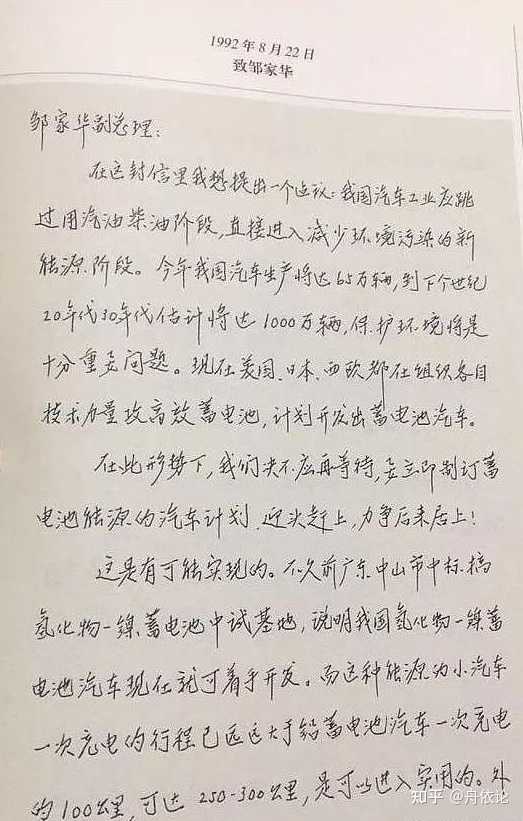 1992年8月22日
致邹家华
邹家华副总理：
在这封信里我想提出一个建议：我国汽车工业应跳
过用汽油柴油阶段，直接进入减少环境污染的新
能源阶段。今年我国汽车生产将达65万辆，到下个世纪
20年代30年代估计将达1000万辆，保护环境将是
十分重要问题。现在美国、日本、西欧都在组织各自
技术力量攻高效蓄电池，计划开发出蓄电池汽车。
在此形势下，我们决不应再等待，要立即制订蓄
电池能源的汽车计划，迎头赶上，力争后来居上！
这是有可能实现的。不久前广东中山市中标搞
氢化物一镍蓄电池中试基地，说明我国氢化物一镍蓄
电池汽车现在就可着手开发。而这种能源的小汽车
一次充电的行程已远远大于铅蓄电池汽车一次充电
的100公里，可达250-300公里，是可以进入实用的。外
知乎 @月依论